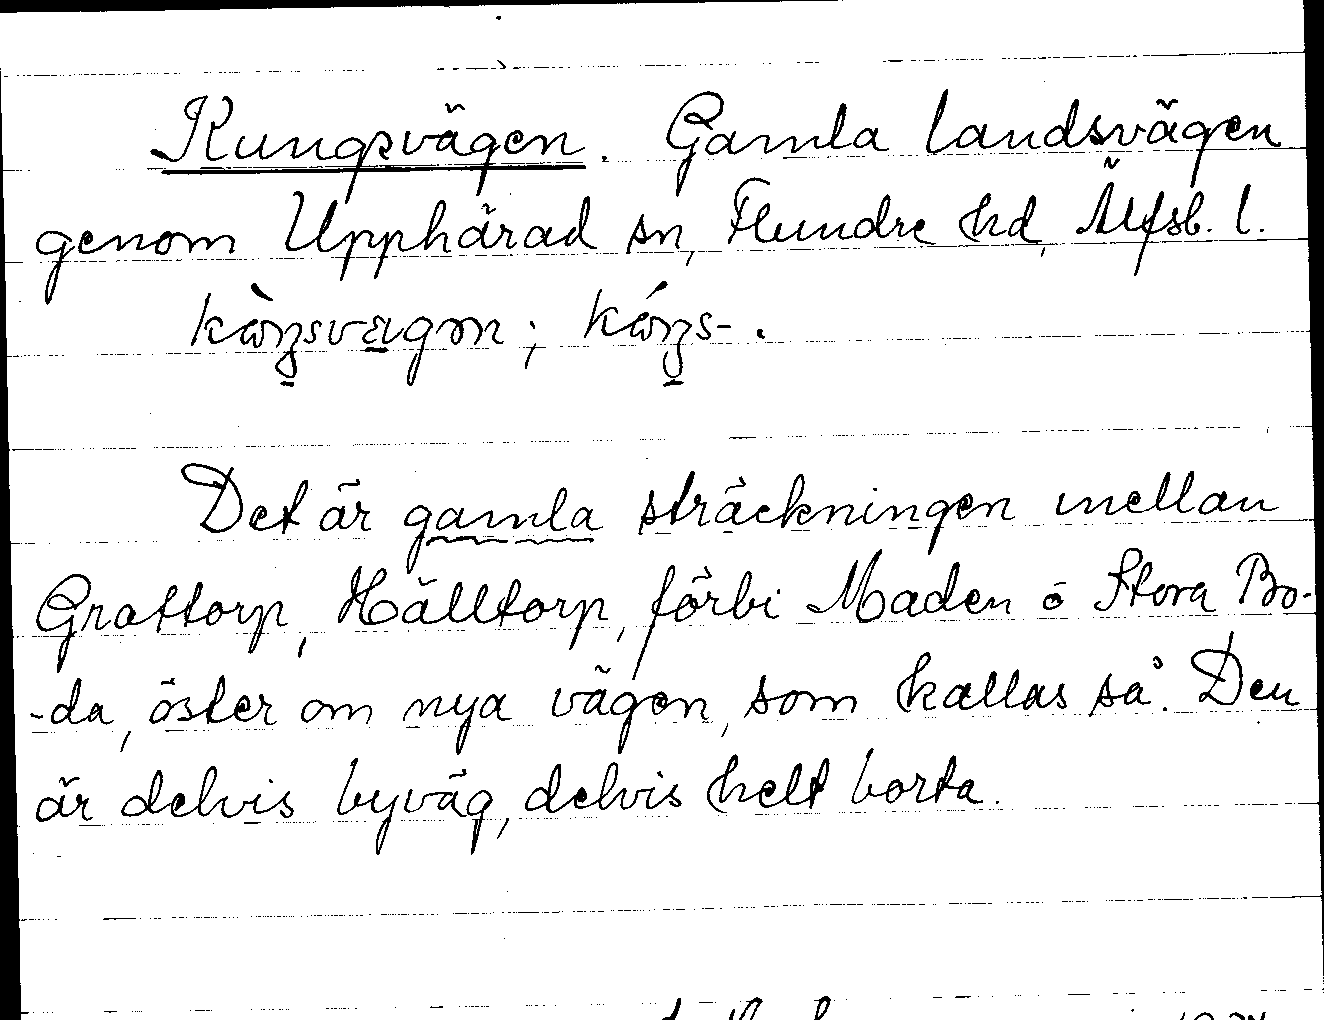 Kungsvägen. Gamla landsvägen
genom Upphärad sn, Flundre hd, Älfsb. l.
Det är gamla sträckningen mellan
Grattorp, Hälltorp, förbi Maden o Stora Bo-
-da, öster om nya vägen, som kallas så. Den
är delvis byväg, delvis helt borta.